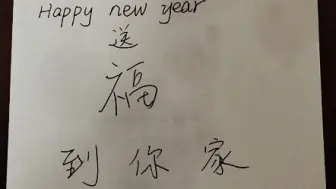 Happy new year
送
福
到你家